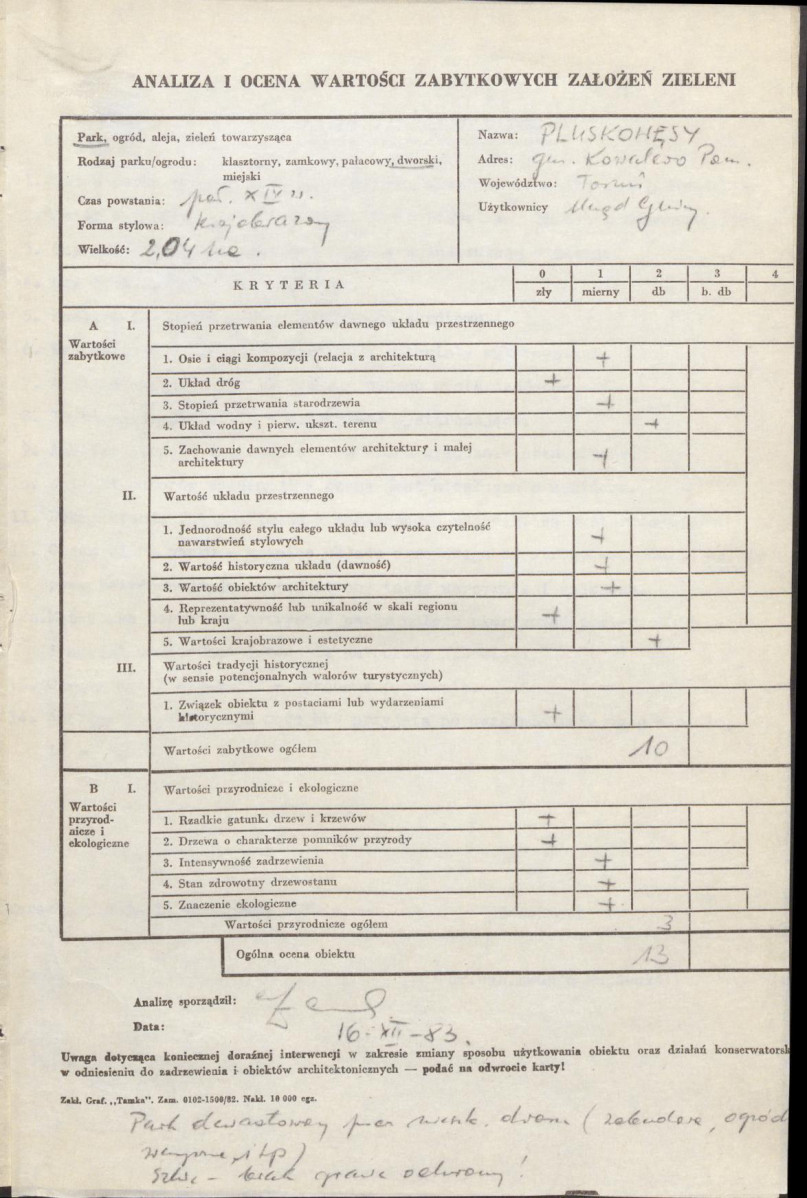 ANALIZA I OCENA WARTOŚCI ZABYTKOWYCH ZAŁOŻEŃ ZIELENI
Park, ogród, aleja, zieleń towarzysząca
Rodzaj parku/ogrodu: klasztorny, zamkowy, pałacowy, dworski,
miejski
Czas powstania: poł. XIX w.
Forma stylowa: krajobrazowy
Wielkość: 2,04 ha.
Nazwa: PLUSKOWĘSY
Adres: gm. Kowalewo Pom.
Województwo: Toruń
Użytkownicy Urząd Gminy.
KRYTERIA
0 1 2 3 4
zły mierny db b. db
A I. Stopień przetrwania elementów dawnego układu przestrzennego
Wartości
zabytkowe
1. Osie i ciągi kompozycji (relacja z architekturą +
2. Układ dróg +
3. Stopień przetrwania starodrzewia +
4. Układ wodny i pierw. ukszt. terenu +
5. Zachowanie dawnych elementów architektury i małej
architektury +
II. Wartość układu przestrzennego
1. Jednorodność stylu całego układu lub wysoka czytelność
nawarstwień stylowych +
2. Wartość historyczna układu (dawność) +
3. Wartość obiektów architektury +
4. Reprezentatywność lub unikalność w skali regionu
lub kraju +
5. Wartości krajobrazowe i estetyczne +
III. Wartości tradycji historycznej
(w sensie potencjonalnych walorów turystycznych)
1. Związek obiektu z postaciami lub wydarzeniami
historycznymi +
Wartości zabytkowe ogółem 10
B I. Wartości przyrodnicze i ekologiczne
Wartości
przyrod-
nicze i
ekologiczne
1. Rzadkie gatunki drzew i krzewów +
2. Drzewa o charakterze pomników przyrody +
3. Intensywność zadrzewienia +
4. Stan zdrowotny drzewostanu +
5. Znaczenie ekologiczne +
Wartości przyrodnicze ogółem 3
Ogólna ocena obiektu 13
Analizę sporządził:
Data: 16-XII-83.
Uwaga dotycząca koniecznej doraźnej interwencji w zakresie zmiany sposobu użytkowania obiektu oraz działań konserwatorsk
w odniesieniu do zadrzewienia i obiektów architektonicznych — podać na odwrocie karty!
Zakł. Graf. „Tamka". Zam. 0102-1500/82. Nakł. 10 000 egz.
Park dewastowany przez mieszk. dworu (zabudowa, ogród
warzywne, itp)
brak opraw ochrony!